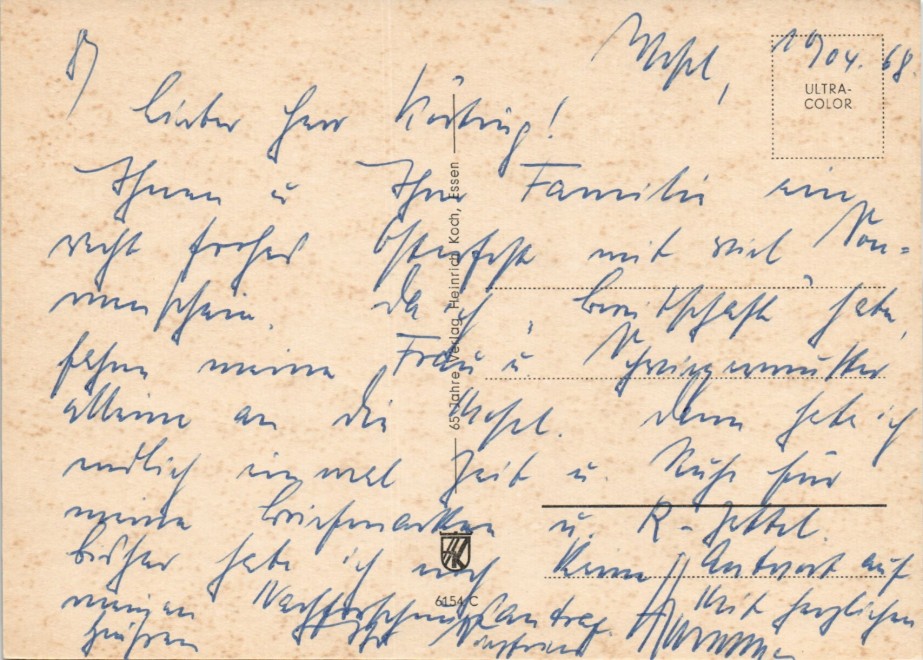 Wesel, 10/04. 68.
ULTRA-
COLOR
Lieber Herr Körting!
Ihnen u Ihrer Familie ein
recht frohes Osterfest mit viel Son=
nenschein. Da ich "Bereitschaft" habe,
fahren meine Frau u. Schwiegermutter
alleine an die Mosel. Dann habe ich
endlich einmal Zeit u. Ruhe für
meine Briefmarken u. R-Zettel.
Bisher habe ich noch keine Antwort auf
meinen Nachforschungsantrag. Mit herzlichen
65 Jahre Verlag Heinrich Koch, Essen
6154 C